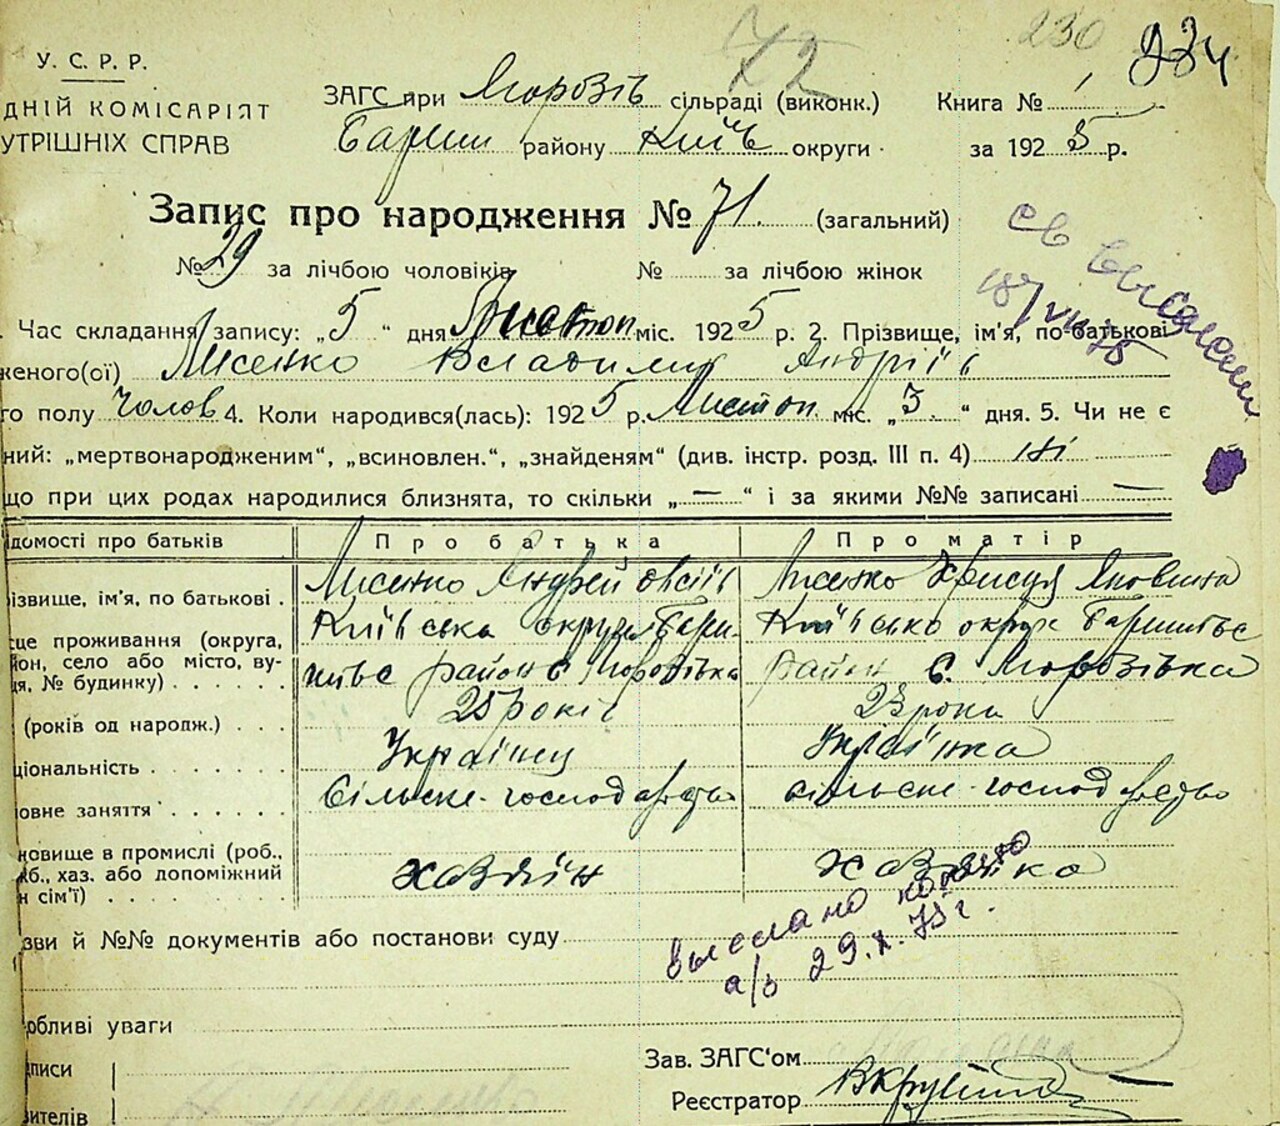 72 230 234
У. С. Р. Р.
ДНІЙ КОМІСАРІЯТ
УТРІШНІХ СПРАВ
ЗАГС при Морозів сільраді (виконк.) Книга № 1
Бариш району Київ округи за 1925 р.
Запис про народження № 71. (загальний)
№ 29 за лічбою чоловіків № за лічбою жінок
св выслан
18/VII 75
. Час складання запису: „5“ дня Листоп міс. 1925 р. 2. Прізвище, ім'я, по-батькові
женого(ої) Лисенко Владимир Андріїв
го полу Чолов 4. Коли народився(лась): 1925 р. Листоп міс. „3.“ дня. 5. Чи не є
ний: „мертвонародженим“, „всиновлен.“, „знайденям“ (див. інстр. розд. III п. 4) ні
що при цих родах народилися близнята, то скільки „—“ і за якими №№ записані —
ідомості про батьків Про батька Про матір
різвище, ім'я, по батькові . Лисенко Андрей Овсіїв Лисенко Хрисця Яковлина
сце проживання (округа, Київська округи Бари- Київсько округ Баришевс
йон, село або місто, ву- шевс район с Морозівка район с. Морозівка
ця, № будинку)
(років од народж.) . . . 25 років 23 роки
ціональність Українец Українка
овне заняття Сільске-господарство сільске-господарство
новище в промислі (роб.,
жб., хаз. або допоміжний хазяїн хазяйка
н сім'ї)
азви й №№ документів або постанови суду
выслано копию
а/з 29.X.75 г.
обливі уваги
Зав. ЗАГС'ом
дписи
Реєстратор
вителів